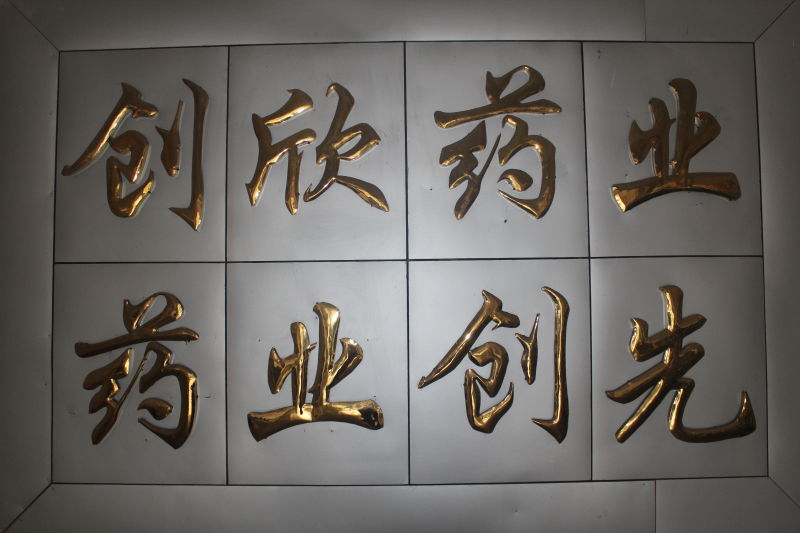 创欣药业
药业创先